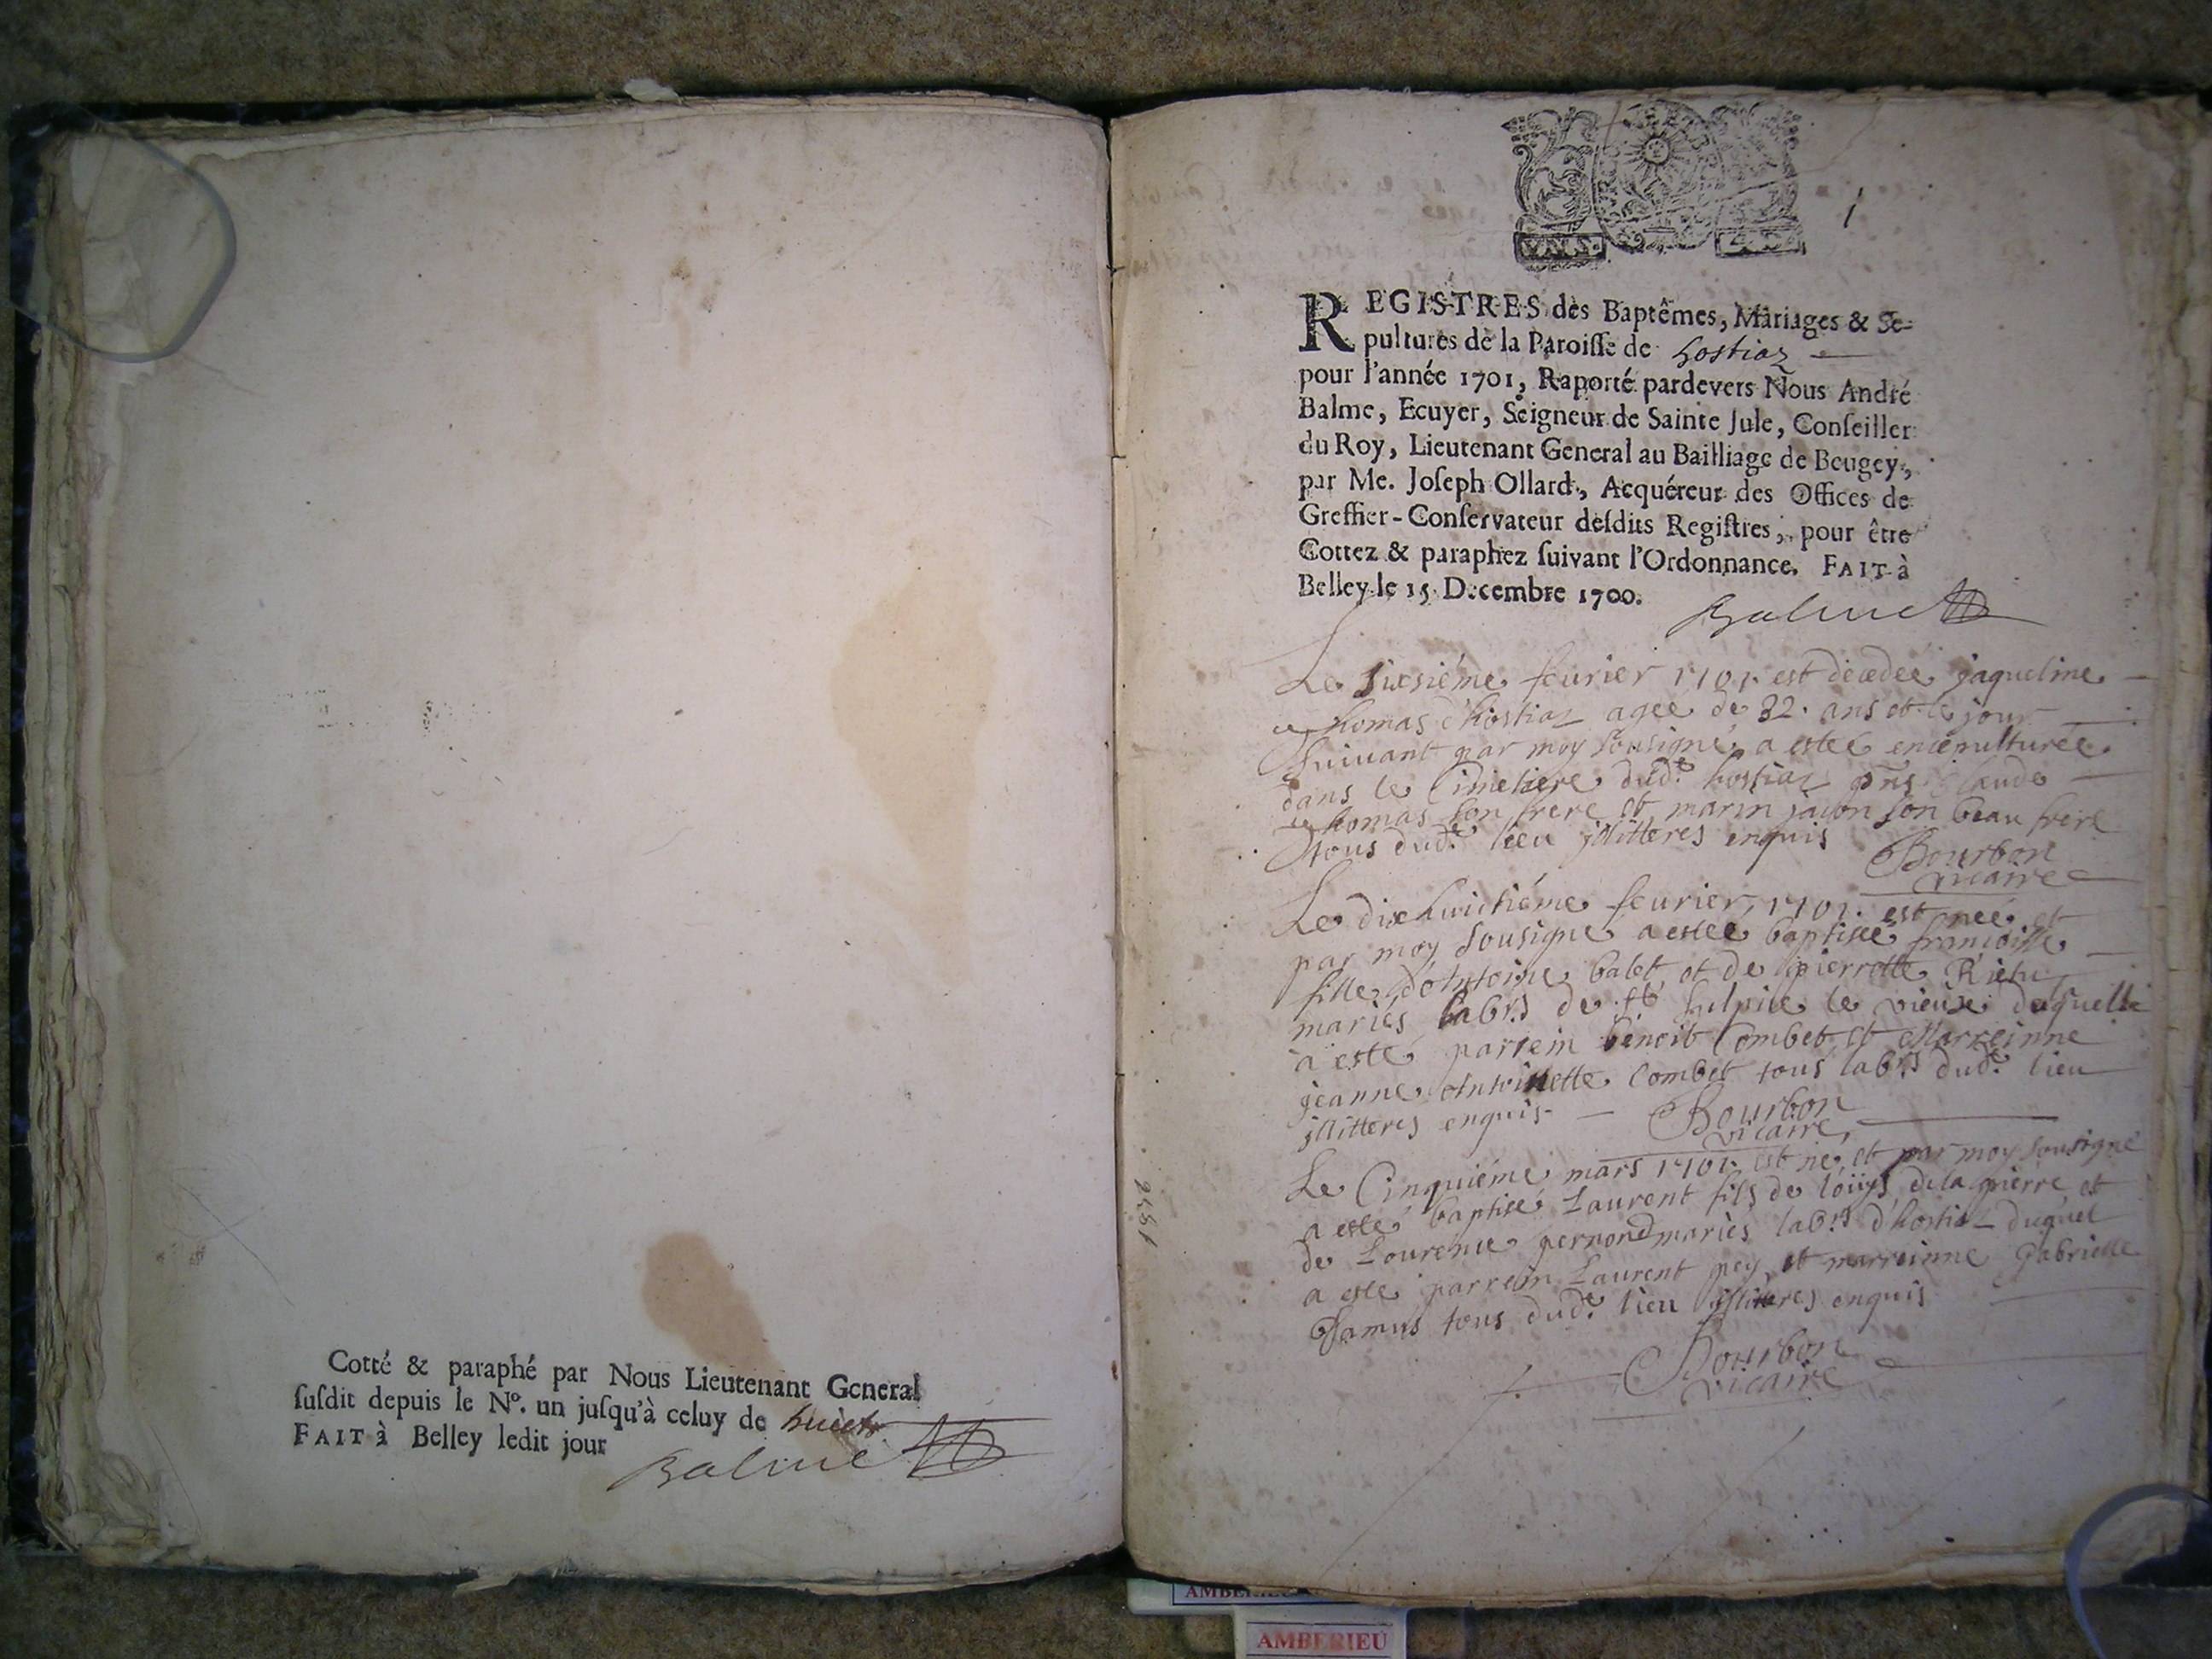 Cotté & paraphé par Nous Lieutenant General
ſuſdit depuis le Nº. un juſqu'à celuy de huict
FAIT à Belley ledit jour
Balme
1
REGISTRES des Baptêmes, Mariages & Se-
pultures de la Paroiſſe de hostiaz
pour l'année 1701, Raporté pardevers Nous André
Balme, Ecuyer, Seigneur de Sainte Jule, Conſeiller
du Roy, Lieutenant General au Bailliage de Beugey,
par Me. Joſeph Ollard, Acquéreur des Offices de
Greffier-Conſervateur deſdits Regiſtres, pour être
Cottez & paraphez ſuivant l'Ordonnance. FAIT à
Belley le 15 Decembre 1700.
Balme
Le sixsiéme feurier 1701. est decedeé jaqueline
thomas d'hostiaz ageé de 32. ans et le jour
suiuant par moy sousigné a esteé ensepultureé
dans le Cimetiere dud.e hostiaz pn̄s Claude
thomas son frere et marin son beau frere
tous dud.e lieu jllitteres enquis
Bourbon
vicaire
Le dixhuictiéme feurier 1701. est neé et
par moy sousigné a esteé baptiseé francoisse
fille d'Antoine balet et de pierrette
mariés lab.rs de st sulpice le vieux duquelle
a esté parrein benoit Combet et Marreinne
jeanne Antoinette Combet tous lab.rs dud.e lieu
jllitteres enquis
Bourbon
vicaire
Le Cinquiéme mars 1701. est né et par moy sousigné
a esté baptisé Laurent fils de loüys delapierre et
de Laurence pernond mariés lab.rs d'hostia duquel
a esté parrein Laurent pey et marreinne gabrielle
Jamus tous dud.e lieu jllitteres enquis
Bourbon
vicaire
AMBERIEU
AMBERIEU